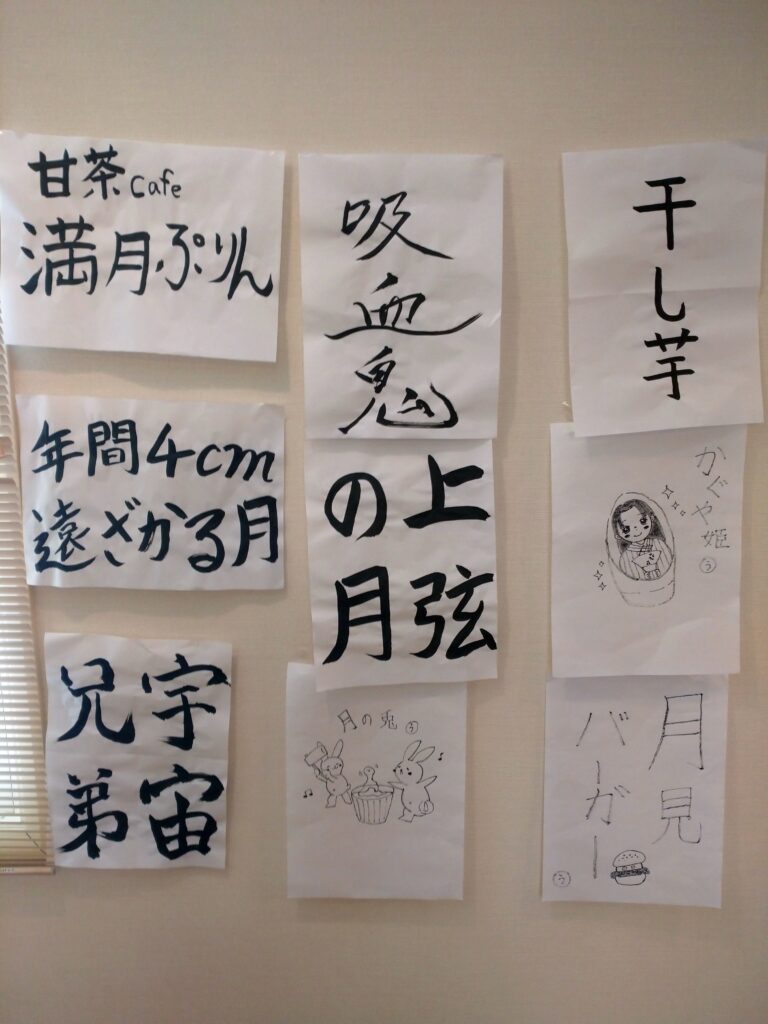 甘茶cafe
満月ぷりん
年間4cm
遠ざかる月
宇宙
兄弟
吸血鬼
上弦
の月
月の兎 う
干し芋
かぐや姫 う
月見
バーガー
う